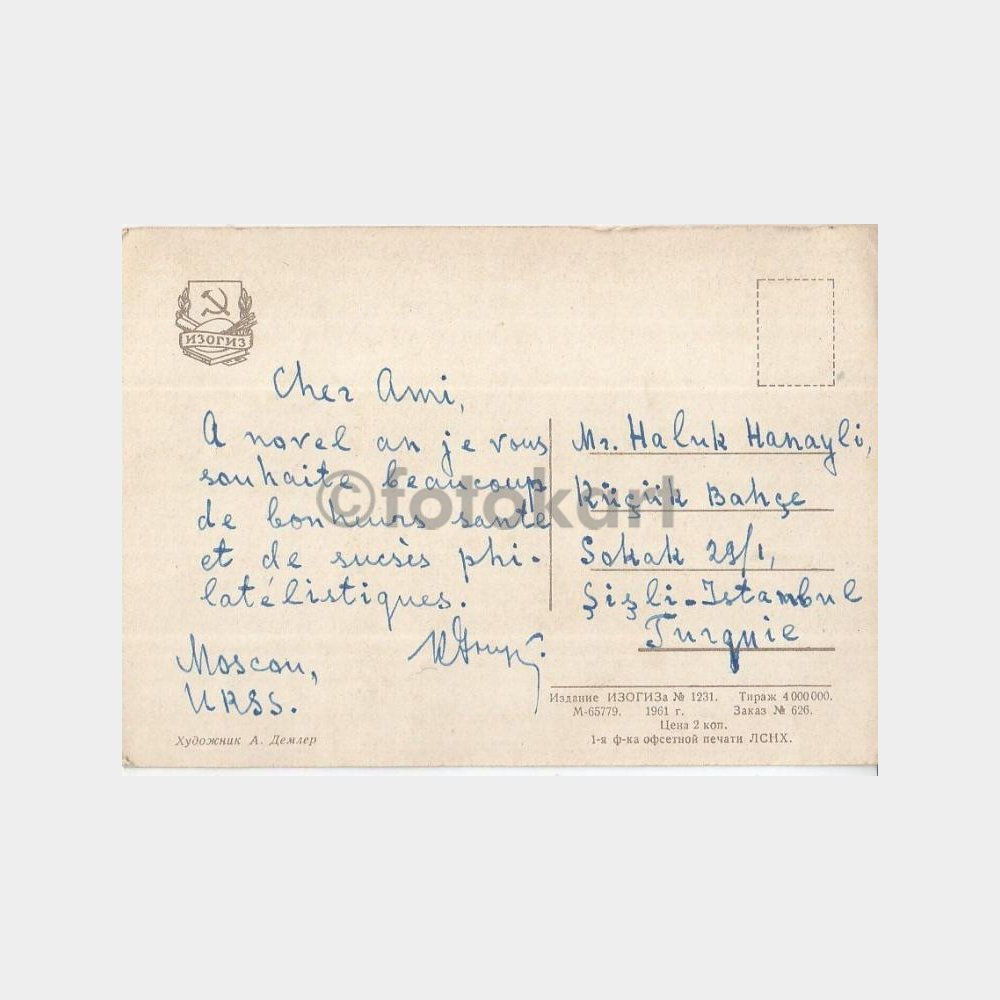 ИЗОГИЗ
Cher Ami,
A novel an je vous
souhaite beaucoup
de bonheurs sante
et de sucsès phi-
latélistiques.
Moscou,
URSS.
Художник А. Демлер
Mr. Haluk Hanayli,
Küçük Bahçe
Sokak 29/1,
Şişli-Istambul
Turquie
Издание ИЗОГИЗа № 1231. Тираж 4 000 000.
М-65779. 1961 г. Заказ № 626.
Цена 2 коп.
1-я ф-ка офсетной печати ЛСНХ.
©fotokart